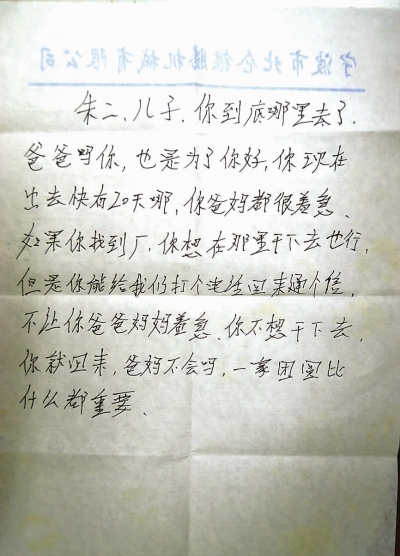 宁波市北仑银腾机械有限公司
朱二、儿子、你到底哪里去了.
爸爸吗你,也是为了你好,你现在
出去快有20天哪,你爸妈都很着急、
如果你找到厂,你想在那里干下去也行,
但是你能给我们打个电话回来通个信,
不让你爸爸妈妈着急、你不想干下去,
你就回来,爸妈不会吗,一家团圆比
什么都重要、